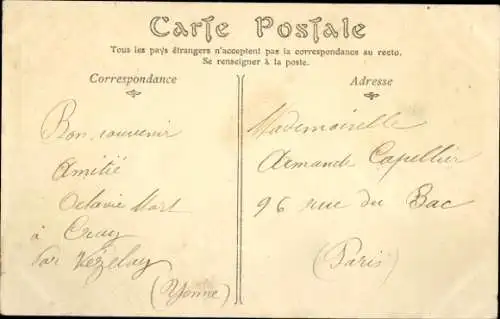 Carte Postale
Tous les pays étrangers n'acceptent pas la correspondance au recto.
Se renseigner à la poste.
Correspondance
Bon souvenir
Amitié
Octavie
à
par Vézelay
(Yonne)
Adresse
Mademoiselle
Armande Capellier
96 rue du Bac
(Paris)